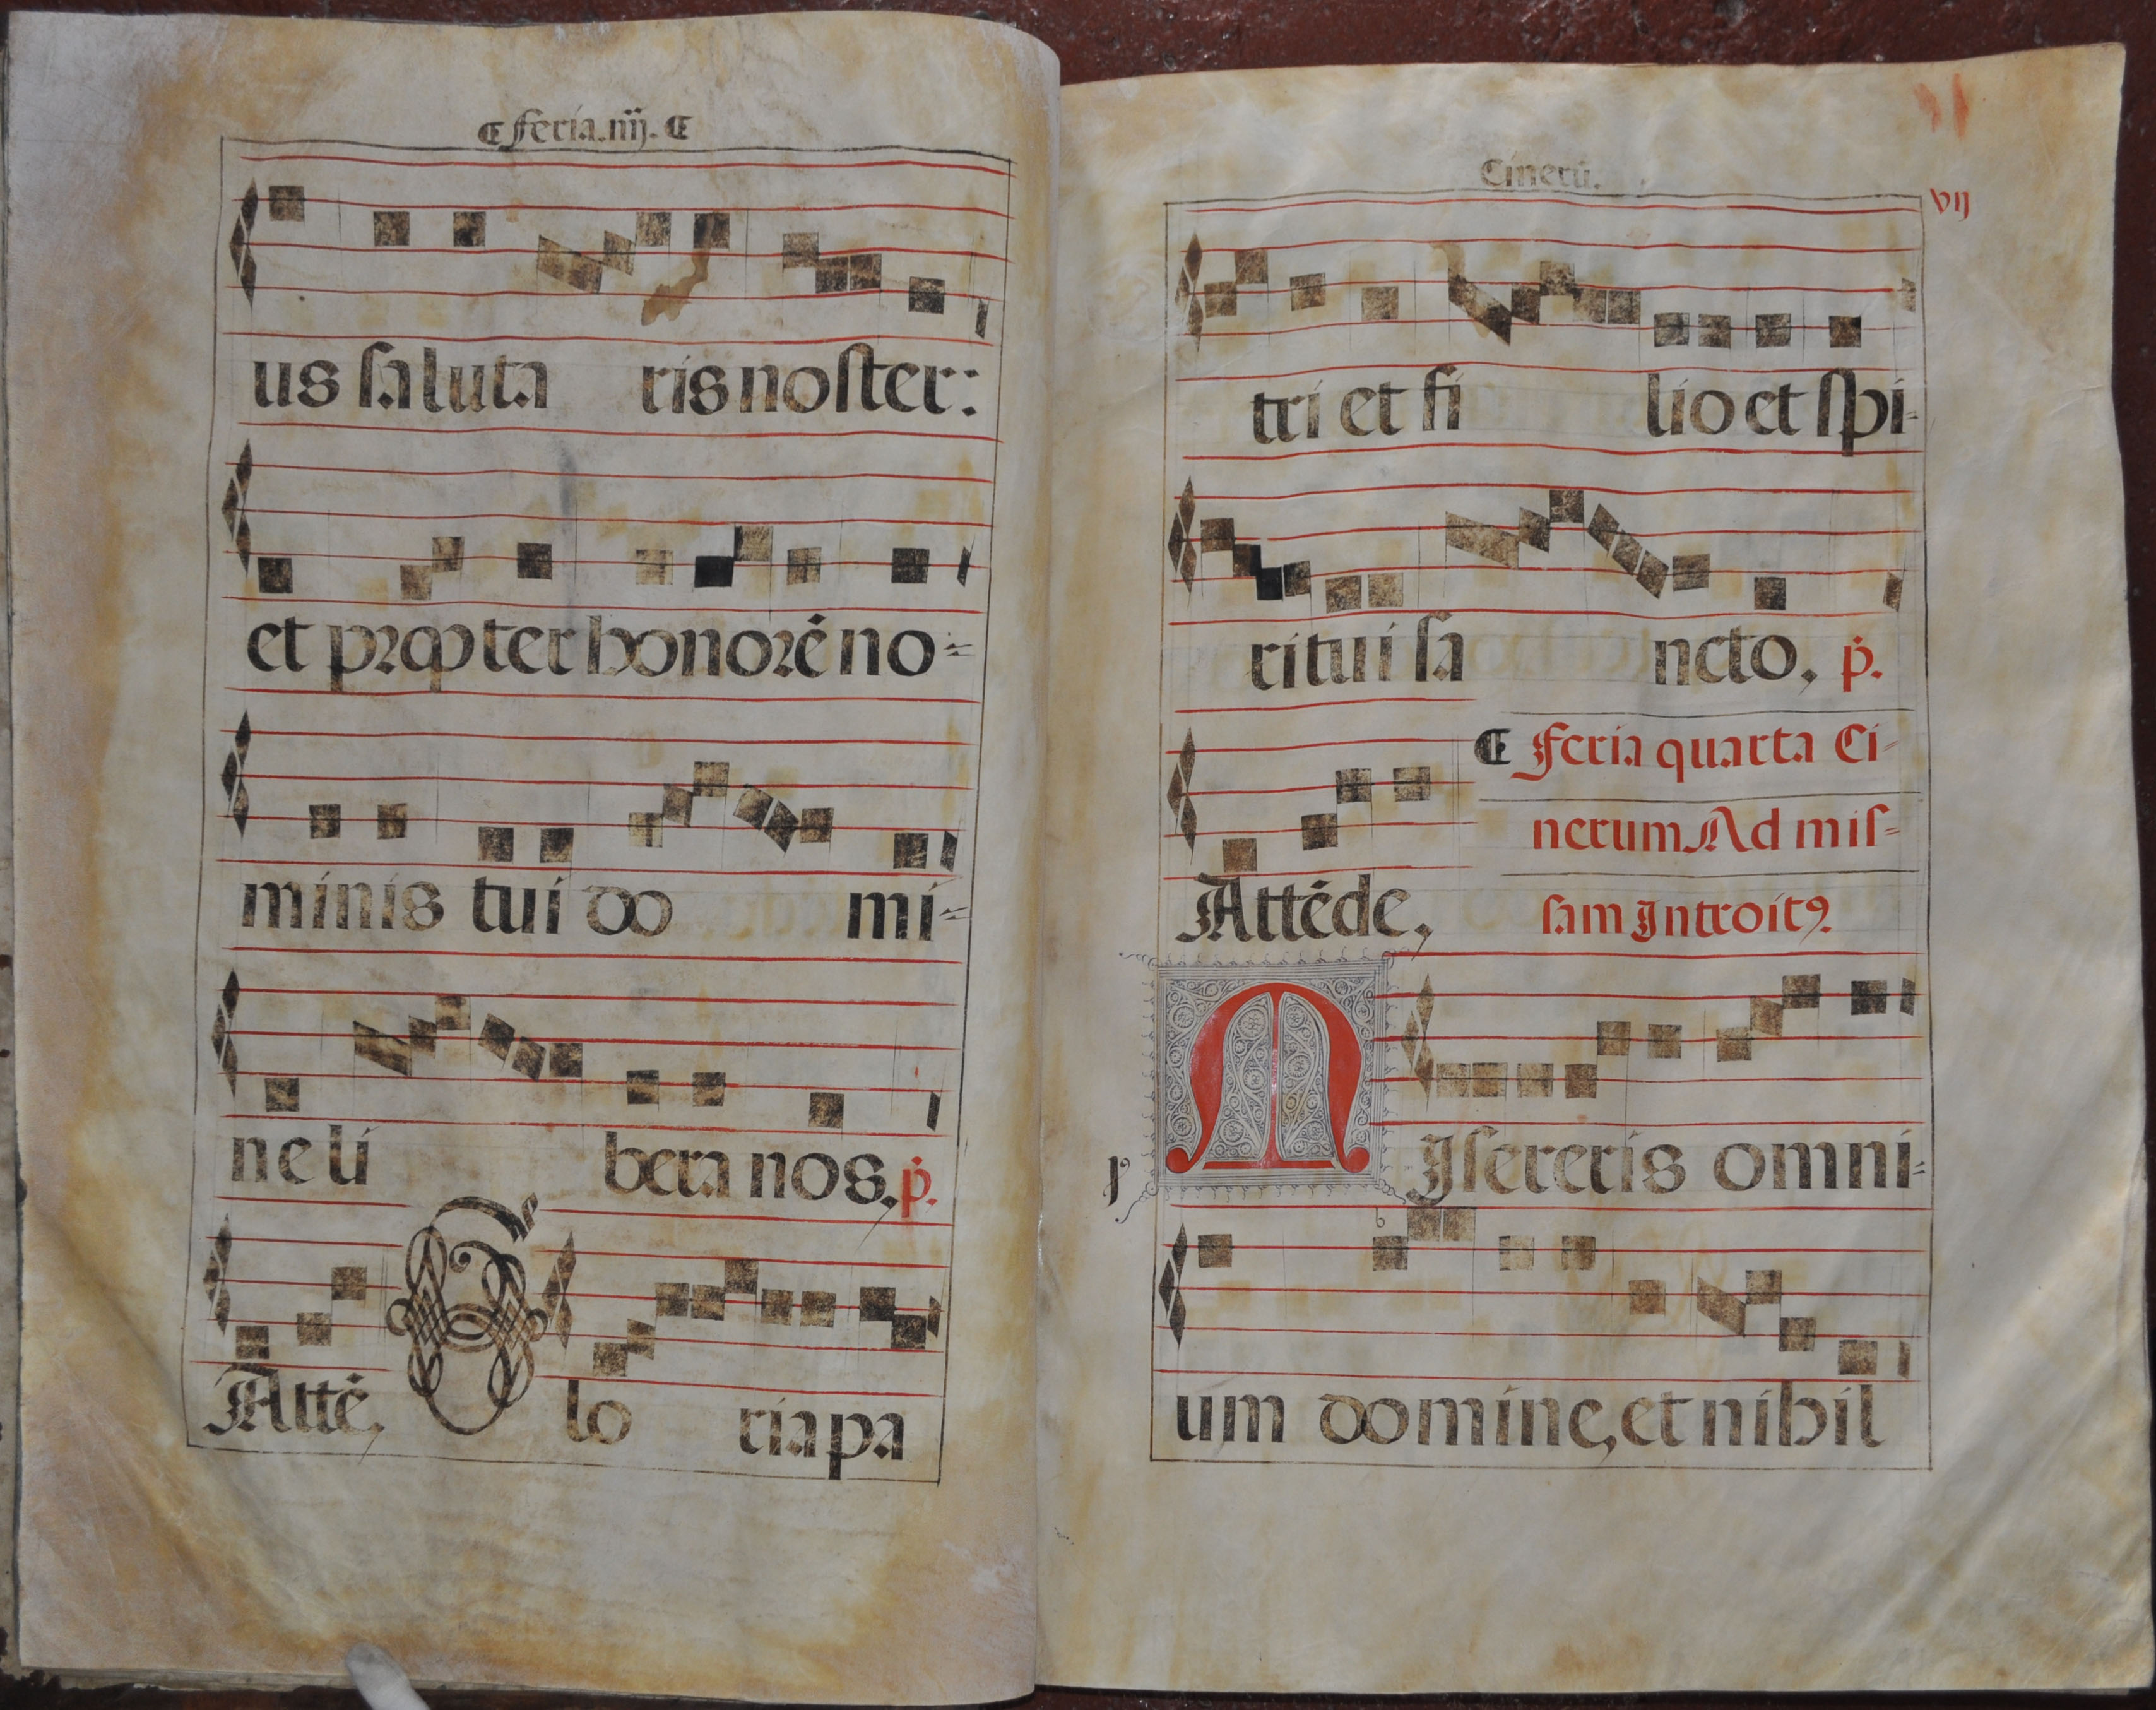 ¶ feria.iiij. ¶
us saluta ris noster:
et propter honorē no=
minis tui do mi=
ne li bera nos. p̄.
Attē, G lo ria pa
Cinerū.
vij
tri et fi lio et spi=
ritui sa ncto, p̄.
¶ Feria quarta Ci=
nerum Ad mis=
sam Introitꝰ.
Attēde,
MIsereris omni=
um domine, et nihil